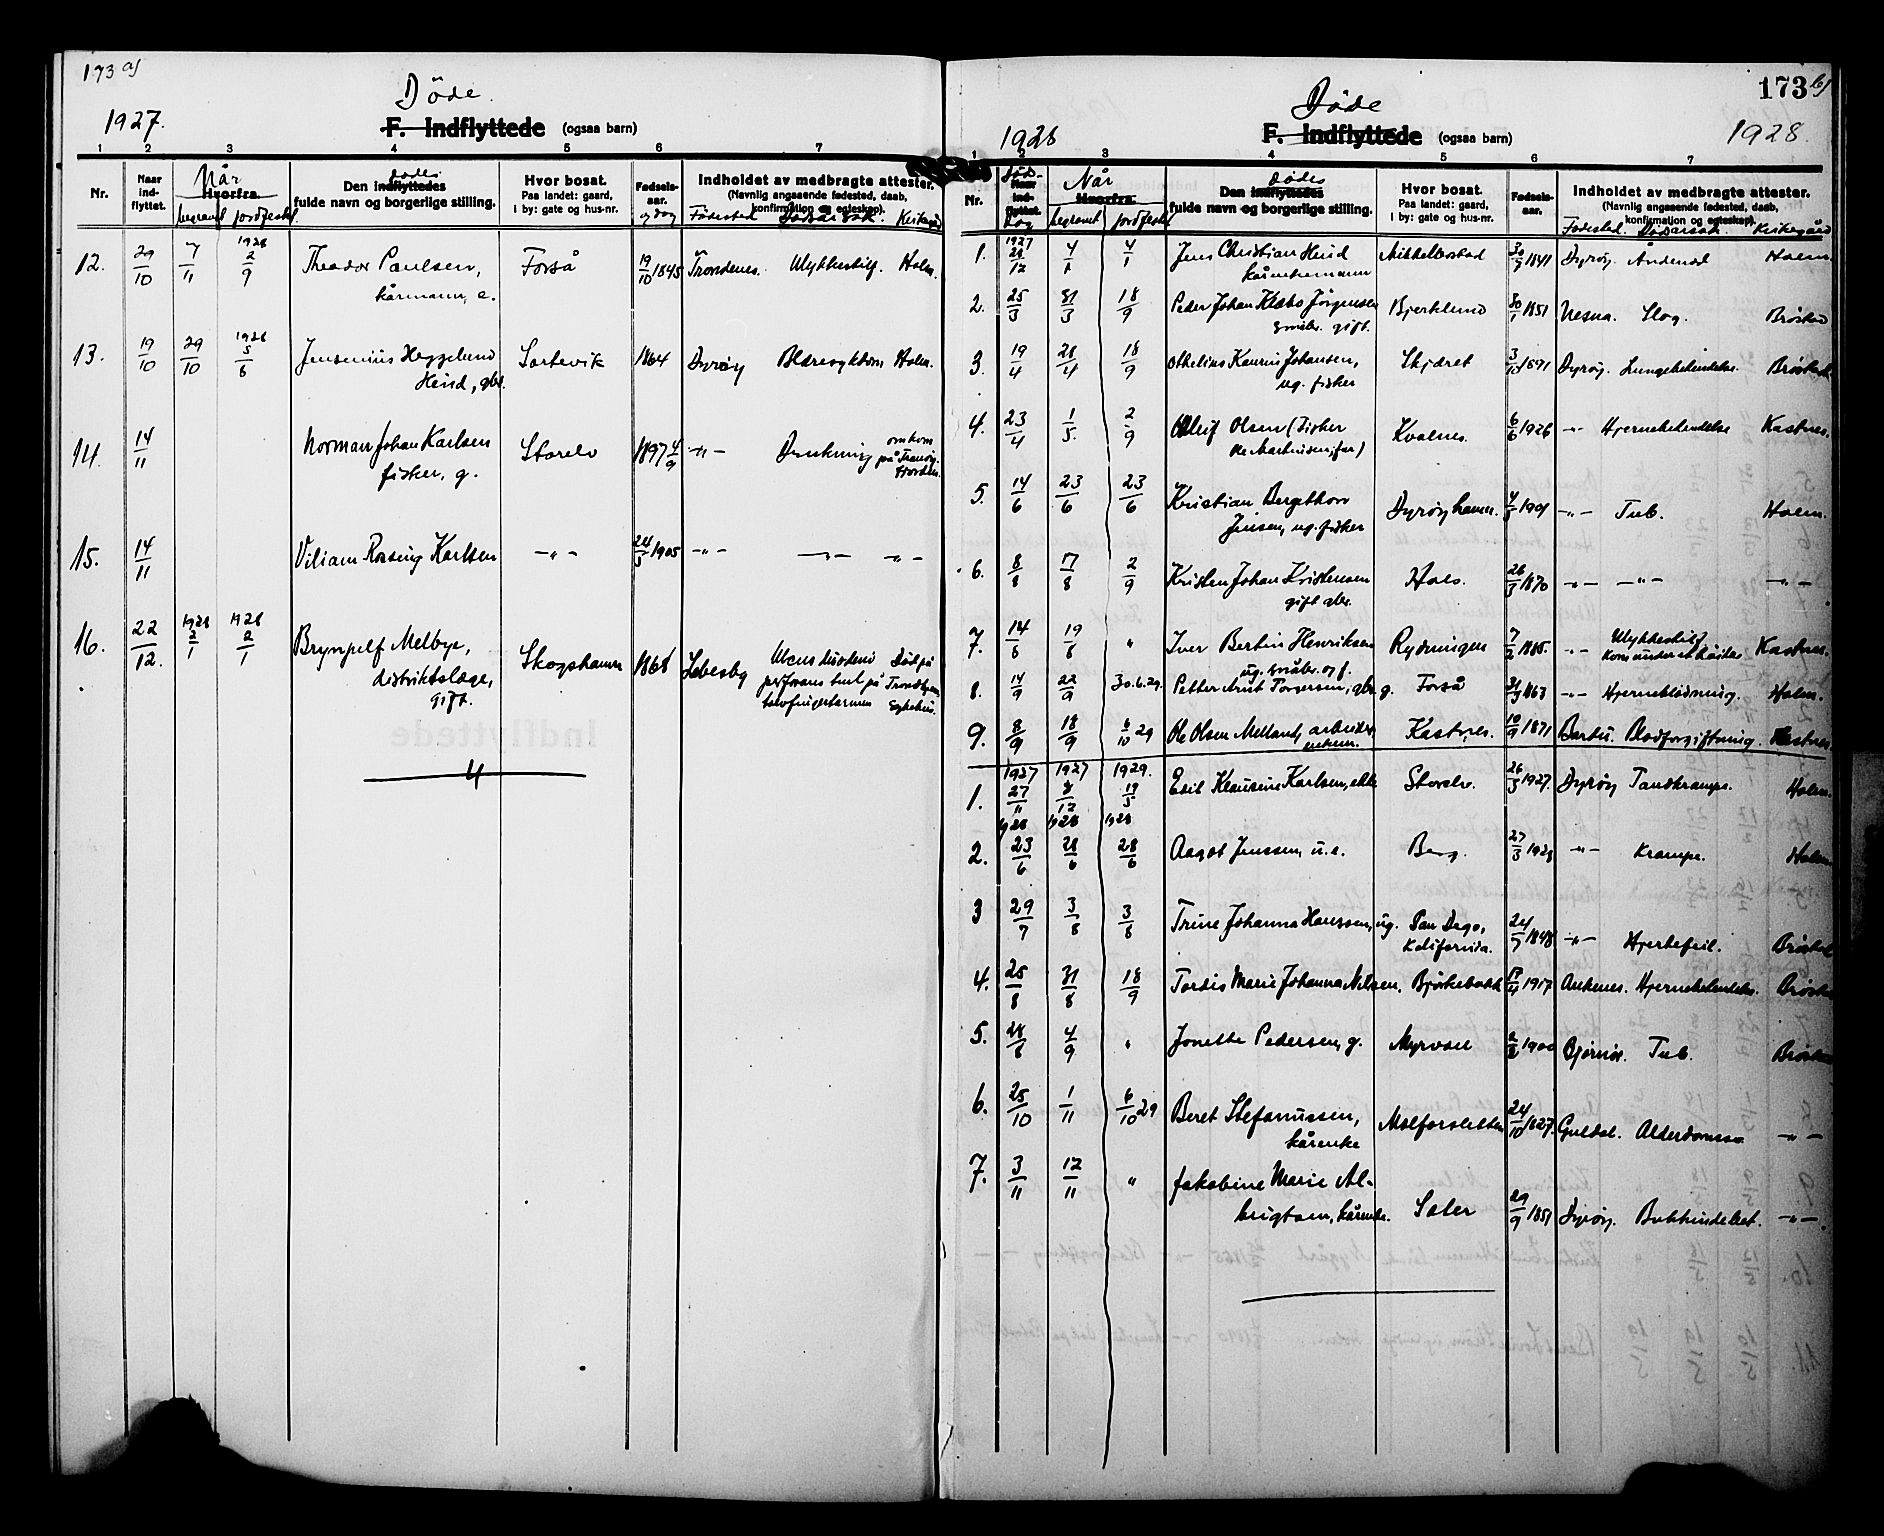 173 a)
Döde.
1927.
F. Indflyttede (ogsaa barn)
1 2 3 4 5 6 7
Nr. Naar ind- flyttet. Når Hvorfra. begravet jordfestet Den indflyttedes dödes fulde navn og borgerlige stilling. Hvor bosat. Paa landet: gaard, I by: gate og hus-nr. Fødsels- aar. og dag Indholdet av medbragte attester. (Navnlig angaaende fødested, daab, konfirmation og egteskap). Födested Dödsårsak. Kirkegård
12. 29/10 7/11 1928 2/9 Theodor Paulsen, Forså 19/10 1845 Trondenes. Ulykkestilf. Holm.
kårmann, e.
13. 19/10 29/10 1928 5/6 Jensenius Heggelund Sortevik 1864 Dyröy Blæresykdom Holm.
Hind, gbr.
14. 14/11 Norman Johan Karlsen Storelv 1897 4/9 -"- Drukning omkom på Tranöy- fjorden.
fisker, g.
15. 14/11 Viliam Rasing Karlsen -"- 24/5 1905 -"- -"- -"-
16. 22/12. 1928 2/1 1928 2/1 Brynjulf Melbye, Skogshamn 1868 Lebesby Ulcus duodeni Död på
distriktslæge, perforans tent på Trondhjem
gift. tolvfingertarmen Sykehus.
4
173 b)
Döde
1928
F. Indflyttede (ogsaa barn)
1928.
1 2 3 4 5 6 7
Nr. Döds- Naar ind- flyttet. dag Når Hvorfra. begravet jordfestet Den indflyttedes dödes fulde navn og borgerlige stilling. Hvor bosat. Paa landet: gaard, I by: gate og hus-nr. Fødsels- aar. Indholdet av medbragte attester. (Navnlig angaaende fødested, daab, konfirmation og egteskap). Födested. Dödsårsak. Kirkegård
1. 1927 28/12 4/1 4/1 Jens Christian Hind Mikkelbostad 30/9 1841 Dyröy. Åndenöd Holm.
kårenkemann
2. 25/3 31/3 18/9 Peder Johan Klæbo Jörgensen Bjerklund 30/1 1851 Nesna. Slag. Bröstad
småbr. gift.
3. 19/4 28/4 18/9 Othelius Kaurin Johansen, Skjæret 3/10 1891 Dyröy. Lungebetendelse. Bröstad.
ug. fisker
4. 23/4 1/5. 2/9 Oleif Olsen (fisker Kvalnes. 6/6 1926 -"- Hjernebetendelse Kastnes.
Ole Martinsen, far)
5. 14/6 23/6 23/6 Kristian Bergethon Dyröyhamn. 4/5 1901 -"- Tub. Holm.
Jensen, ug. fisker
6. 8/8 17/8 2/9 Kristen Johan Kristensen Hols. 26/3 1870 -"- -"- -"-
gift gbr.
7. 14/8 19/8 " Iver Bertin Henriksen Rydningen 7/2 1885. -"- Ulykkestilf. Kom under et Kastnes.
ug. småbr. og f.
8. 14/9 22/9 30.6.29. Petter Arnt Torgersen, gbr. g. Forså 31/3 1863 -"- Hjerneblödning. Holm.
9. 8/9 18/9 6/10 29 Ole Olsen Melland, arbeider, Kastnes. 10/9 1871 Bardu. Blodforgiftning. Kastnes.
enkem.
1. 1927 27/11 1927 8/12 1929. 19/5 Edil Klausine Karlsen, ekte Storelv. 26/3 1927. Dyröy Tandkrampe. Holm.
2. 1928 23/6 1928 28/6 1928 28/6 Aagot Jenssen, u.e. Berg. 27/3 1928 -"- Krampe. Holm
3 29/7 3/8 3/8 Trine Johanna Hanssen, ug. San Dego, 24/7 1848 -"- Hjertefeil. Bröstad
Kalifornia.
4. 25/8 31/8 18/9 Tordis Marie Johanna Nilsen, Björkebakk 1917 Ankenes. Hjernebetendelse. Bröstad
5. 28/8 4/9 " Jonette Pedersen, g. Myrvoll 1900 Tub. Bröstad
6. 25/10 1/11 6/10 29 Beret Stefanussen, Molforsletten 24/10 1827. Guldal. Alderdomssv. -"-
kårenke
7. 3/11 12/11 " Jakobine Marie Al- Soler 29/9 1851 Dyröy. -"-.
brigtsen, kårenke.